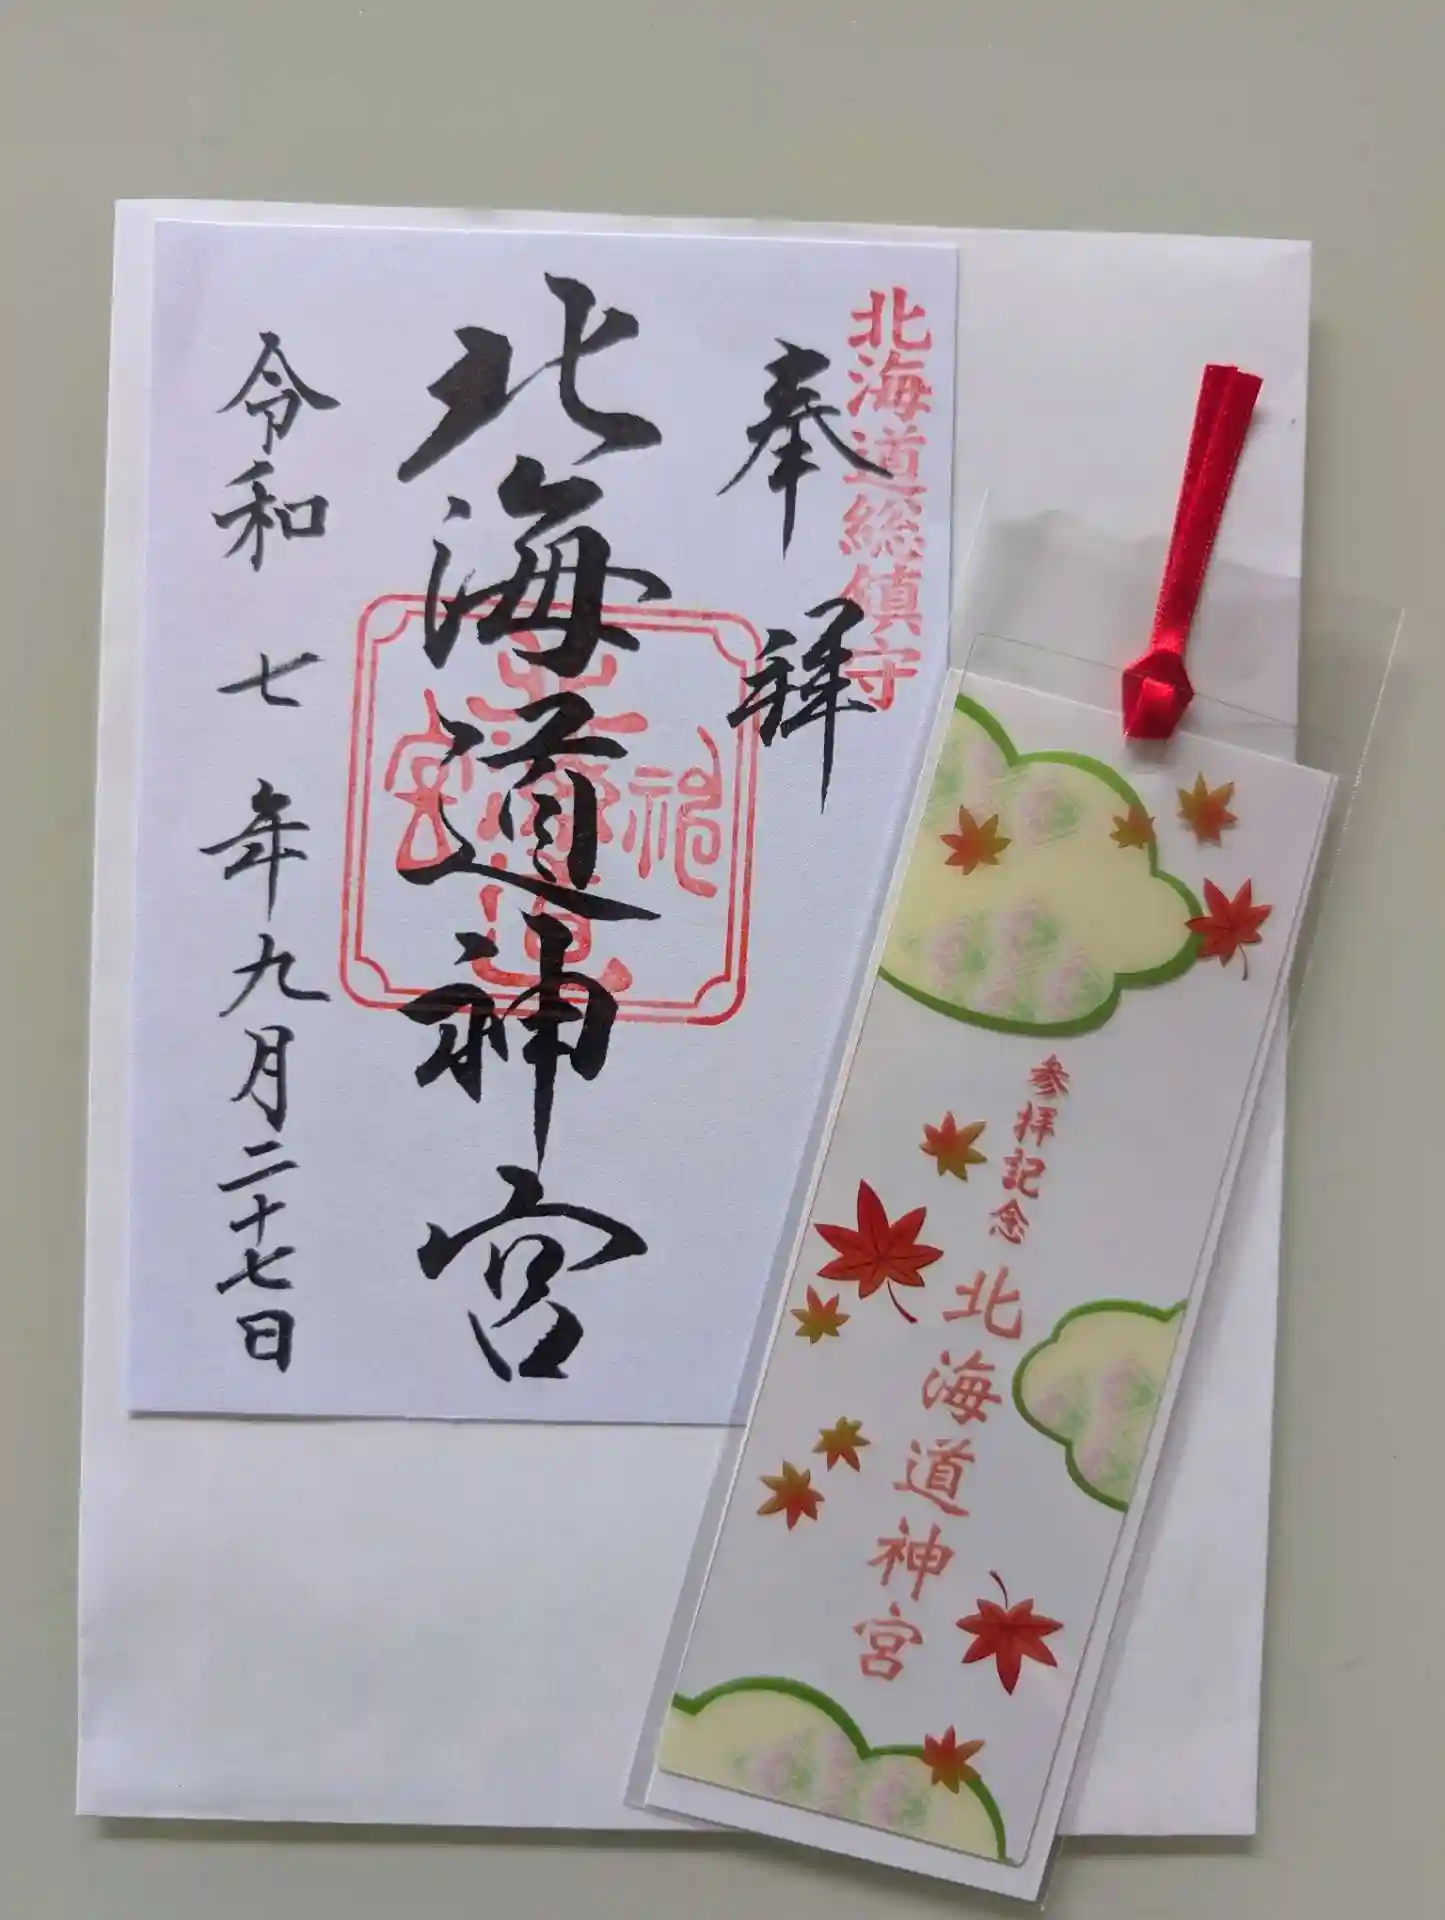 北海道総鎮守
奉拝
北海道神宮
令和七年九月二十七日
北海道神宮
参拝記念
北海道神宮